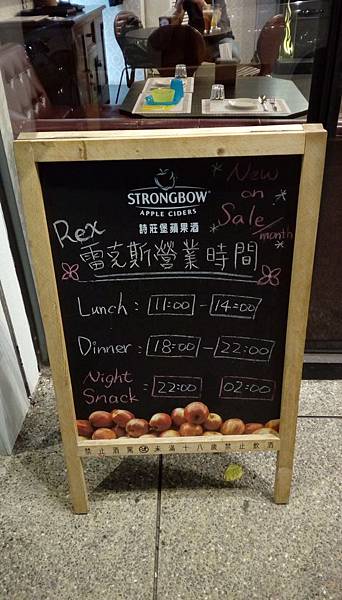 STRONGBOW
APPLE CIDERS
詩莊堡蘋果酒
Now
on
Sale
/month
Rex
雷克斯營業時間
Lunch : 11:00 - 14:00
Dinner : 18:00 - 22:00
Night
Snack : 22:00 02:00
禁止酒駕 未滿十八歲禁止飲酒